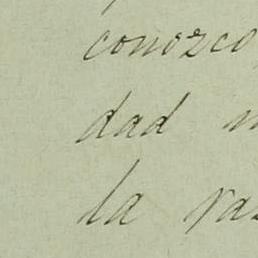 conozco
dad
la